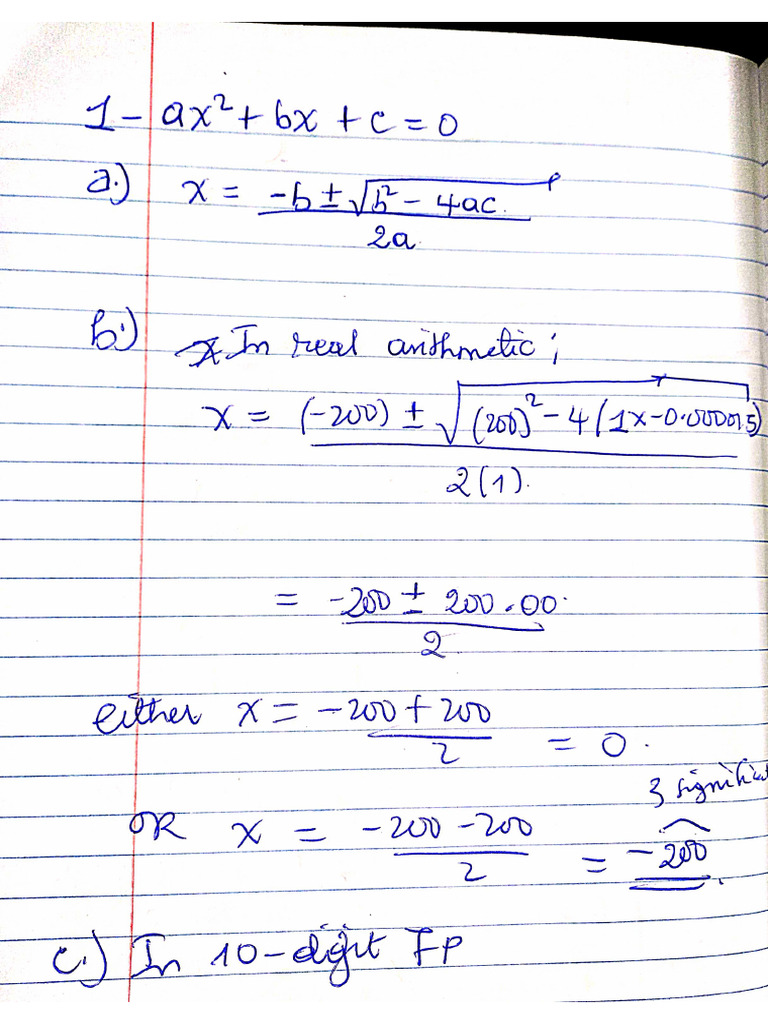 1 - ax² + bx + c = 0
a.) x = -b ± √b² - 4ac
2a
b.) In real arithmetic;
x = (-200) ± √(200)² - 4(1x-0.000015)
2(1).
= -200 ± 200.00
2
either x = -200 + 200
2 = 0.
3 significant
OR x = -200 - 200
2 = -200
c.) In 10-digit FP